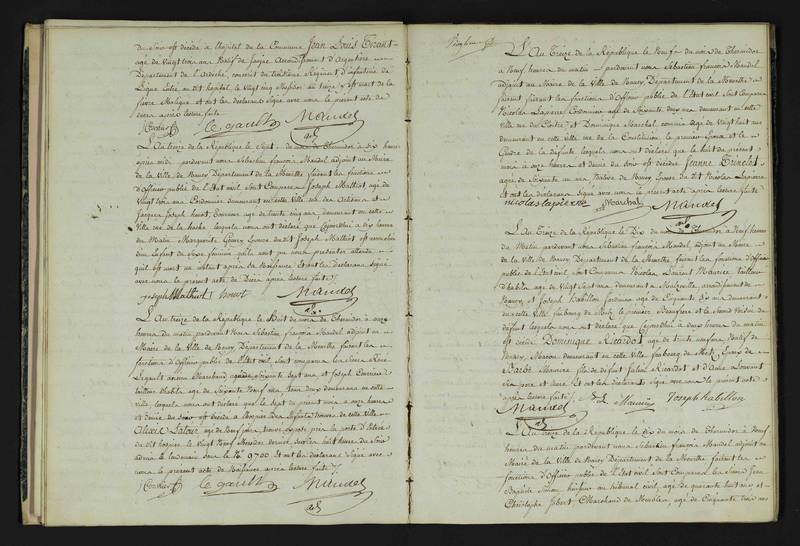 du soir est décédé à l'hopital de la Commune Jean Louis Tirant
agé de Vingt trois ans Natif de Arrondissement d'Argentiere
Département de l'ardeche, conscrit du trentieme Régiment d'infanterie de
Ligne entré au dit hopital le Vingt cinq Messidor an treize est mort de la
fievre Maligne et ont les déclarans Signé avec nous le présent acte de
décès après lecture faite
le gault Mandel
adj
L'An treize de la République le Sept du mois de Thermidor à dix heures
après midi pardevant nous Sébastien françois Mandel adjoint au Maire
de la Ville de Nancy Département de la Meurthe faisant les fonctions
d'Officier public de l'Etat civil Sont Comparus Joseph Mathiot agé de
Vingt trois ans Cordonnier demeurant en cette Ville rue des Artisans et
Jacques Joseph huot, Tourneur agé de trente cinq ans, demeurant en cette
Ville rue de la hache lesquels nous ont déclaré que Cejourdhui à dix heures
du Matin Marguerite Epouse dudit Joseph Mathiot est accouchée
d'un Enfant du Sexe féminin qu'ils n'ont pu nous présenter attendu
qu'il est mort un instant après sa Naissance Et ont les déclarans signé
avec nous le présent acte de Décès après lecture faite
Joseph Mathiot huot Mandel
adj.
L'An treize de la République le Huit du mois de Thermidor à onze
heures du matin pardevant nous Sébastien françois Mandel adjoint au
Maire de la Ville de Nancy Département de la Meurthe faisant les
fonctions d'Officier public de l'Etat civil, Sont comparus les Sieurs René
Legault ancien Marchand agé de soixante sept ans et Joseph Couvrier
tailleur d'habits agé de Soixante Neuf ans, tous deux demeurans en cette
ville, lesquels nous ont déclaré que le Sept du présent mois à onze heures
et demie du soir est décédé à l'hospice des Enfants trouvés de cette Ville
Alexis Latour agé de Neuf jours, trouvé exposé près la porte d'Entrée
du dit hospice le Vingt Neuf Messidor dernier, sur les huit heures du Soir
admis le lendemain sous le No 9700 Et ont les déclarans Signé avec
nous le présent acte de Naissance après lecture faite
le gault Mandel
adj
L'An Treize de la République le Neuf du mois de Thermidor
à Neuf heures du matin pardevant nous Sébastien françois Mandel
adjoint au Maire de la Ville de Nancy Département de la Meurthe
faisant les fonctions d'Officier public de l'Etat civil Sont Comparus
Nicolas Lapierre Cordonnier agé de Soixante deux ans demeurant en cette
ville rue du Cloître Et Dominique Marchal commis agé de Vingt huit ans
demeurant en cette ville rue de la Constitution, le premier Epoux et le
Gendre de la défunte lesquels nous ont déclaré que le huit du présent
mois à onze heures et demie du soir est décédée Jeanne
agée de Soixante un ans Native de Nancy Epouse du dit Nicolas Lapierre
Et ont les déclarans Signé avec nous le présent acte après lecture faite
nicolas lapierre Marchal Mandel
adj
L'An Treize de la République le Dix du mois de Thermidor à Neuf heures
du Matin pardevant nous Sébastien françois Mandel, adjoint au Maire
de la ville de Nancy Département de la Meurthe faisant les fonctions d'Officier
public de l'Etat civil Sont Comparus Nicolas Laurent Maurice tailleur
d'habits agé de Vingt Sept ans demeurant à Malzeville, arrondissement de
Nancy, et Joseph Habillon Jardinier agé de Cinquante dix ans demeurant
en cette Ville faubourg de Metz le premier Beaufrere et le second Voisin du
défunt lesquels nous ont déclaré que Cejourdhui à deux heures du matin
est décédé Dominique Ricardot agé de trente neuf ans Natif de
Nancy, Macon demeurant en cette Ville faubourg de Metz Epoux de
Barbe Maurice fils de défunt Ricardot et d'Anne
ses pere et mere. Et ont les déclarans Signé avec nous le présent acte
après lecture faite
N L Maurice Joseph habillon
Mandel
adj
L'An treize de la République le dix du mois de Thermidor à Neuf
heures du matin pardevant nous Sébastien françois Mandel adjoint au
Maire de la Ville de Nancy Département de la Meurthe faisant les
fonctions d'Officier public de l'Etat civil Sont Comparus les Sieurs Jean
Baptiste huissier au tribunal civil, agé de quarante huit ans, et
Christophe Jobert, Marchand de Meubles, agé de Cinquante trois ans